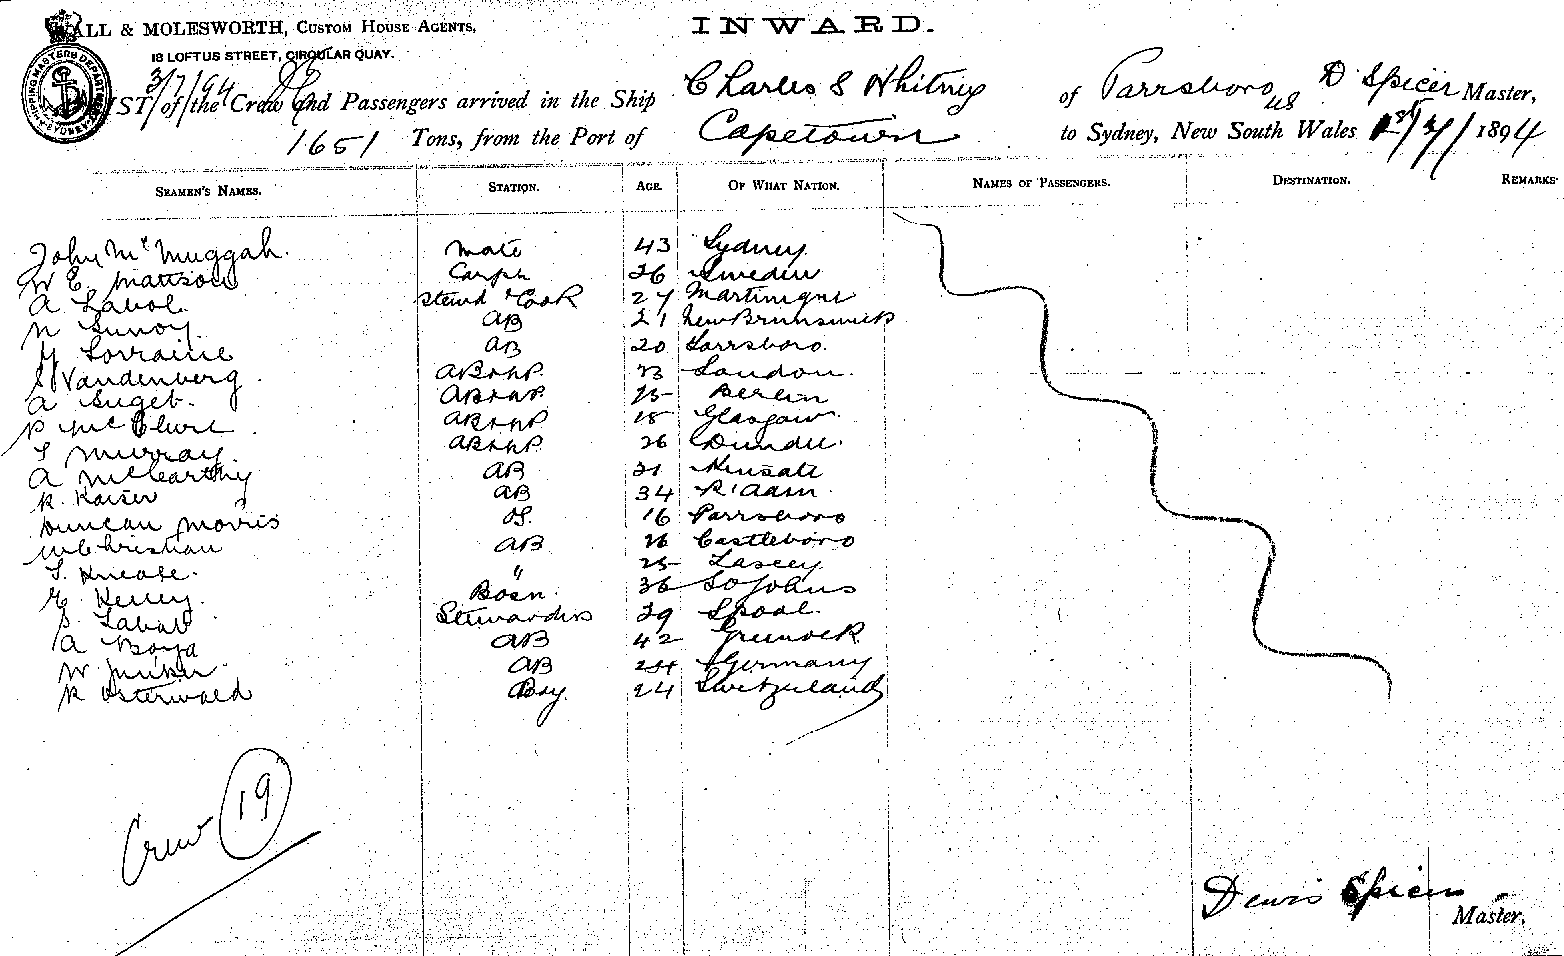 WALL & MOLESWORTH, CUSTOM HOUSE AGENTS,
18 LOFTUS STREET, CIRCULAR QUAY.
INWARD.
SHIPPING MASTERS DEPARTMENT SYDNEY
3/7/94
LIST of the Crew and Passengers arrived in the Ship Charles S Whitney of Parrsboro NS D Spicer Master,
1651 Tons, from the Port of Capetown to Sydney, New South Wales 1894
SEAMEN'S NAMES. STATION. AGE. OF WHAT NATION. NAMES OF PASSENGERS. DESTINATION. REMARKS
John Mc Muggah. Mate 43 Sydney
W E Mattson Carpn 26 Sweden
A Labol. Stewd & Cook 27 Martinique
AB 21 New Brunswick
Lorraine AB 20 Parrsboro.
S Vandenberg AB 23 London.
A AB 25 Berlin
P McClure AB 18 Glasgow
T Murray. AB 26 Dundee.
A McCearthy AB 21 Kinsale
R. Kaiser AB 34
Duncan Morris OS. 16 Parrsboro
W Christian AB 26 Castleboro
T. " 25
Kenny. Bosn 36 St Johns
S. Stewardess 29
A AB 42 Greenock
W AB 24 Germany
R Osterwald Boy. 24 Switzerland
Crew 19
Dewis Spicer
Master,